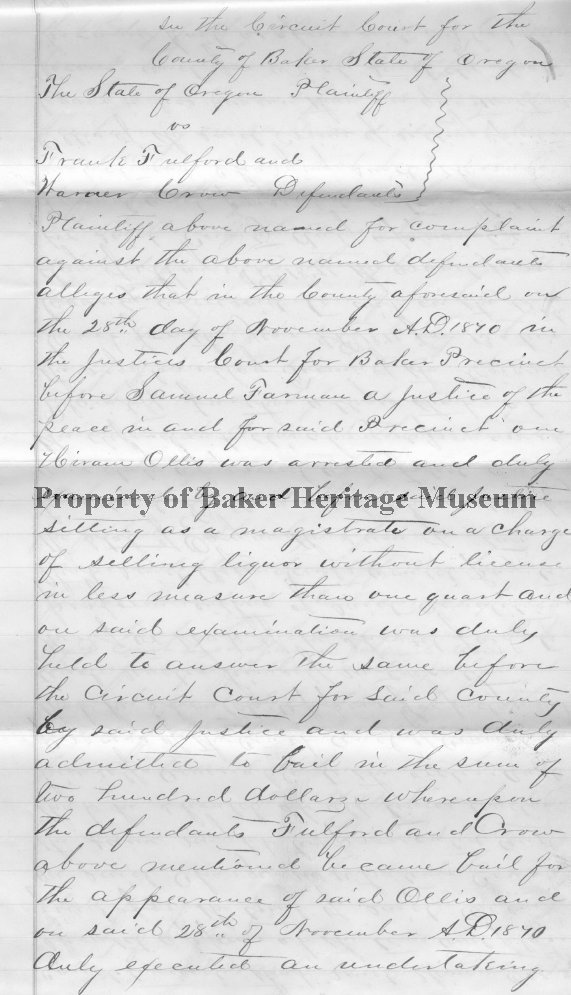 In the Circuit Court for the
County of Baker State of Oregon
The State of Oregon Plaintiff
vs
Frank Fulford and
Warner Crow Defendants
Plaintiff above named for complaint
against the above named defendants
alleges that in the County aforesaid on
the 28th day of November A.D. 1870 in
the Justices Court for Baker Precinct
before Samuel Tarman a Justice of the
peace in and for said Precinct one
Hiram Ollis was arrested and duly
Property of Baker Heritage Museum
sitting as a magistrate on a charge
of selling liquor without license
in less measure than one quart and
on said examination was duly
held to answer the same before
the Circuit Court for said County
by said Justice and was duly
admitted to bail in the sum of
two hundred dollars whereupon
the defendants Fulford and Crow
above mentioned became bail for
the appearance of said Ollis and
on said 28th of November A.D. 1870
duly executed an undertaking